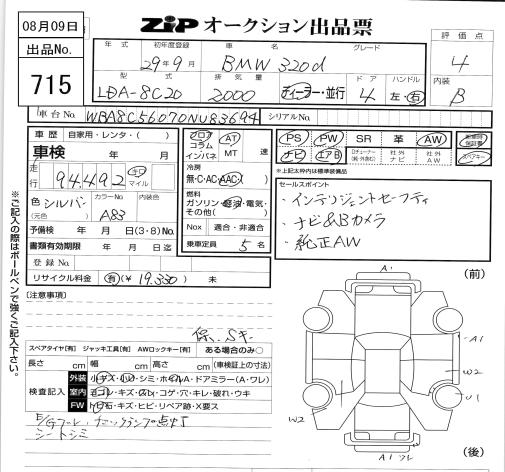 08月09日
出品No.
715
ZiP オークション出品票
年式 初年度登録 車名 グレード
29年9月 BMW 320d
型式 排気量 ドア ハンドル
LDA-8C20 2000 ディーラー・並行 4 左・右
評価点
4
内装
B
車台No. WBA8C56070NU83694 シリアルNo.
車歴 自家用・レンタ・( )
車検 年 月
走行 94,492 キロ マイル
色 シルバー
(元色)
カラーNo. A83
内装色
予備検 年 月 日(3・8)No.
書類有効期限 年 月 日迄
登録No.
リサイクル料金 有(¥ 19,330 ) 未
フロア コラム インパネ
AT MT 速
冷房
無・C・AC・AAC
燃料
ガソリン・軽油・電気・その他( )
Nox 適合・非適合
乗車定員 5 名
PS PW SR 革 AW
ナビ エアB 社外ナビ 社外AW
※上記太枠内は標準装備品
セールスポイント
・インテリジェントセーフティ
・ナビ&Bカメラ
・純正AW
※ご記入の際はボールペンで強くご記入下さい。
(注意事項)
スペアタイヤ[有] ジャッキ工具[有] AWロックキー[有] ある場合のみ○
長さ cm 幅 cm 高さ cm (車検証上の寸法)
検査記入
外装 小キズ・小凹・シミ・ホイルA・ドアミラー(A・ワレ)
室内 ヨゴレ・キズ・スレ・コゲ・穴・キレ・破れ・ウキ
FW トビ石・キズ・ヒビ・リペア跡・X要ス
シートシミ
(前)
A1
A1
W2
U1
W2
A1 ワレ
(後)